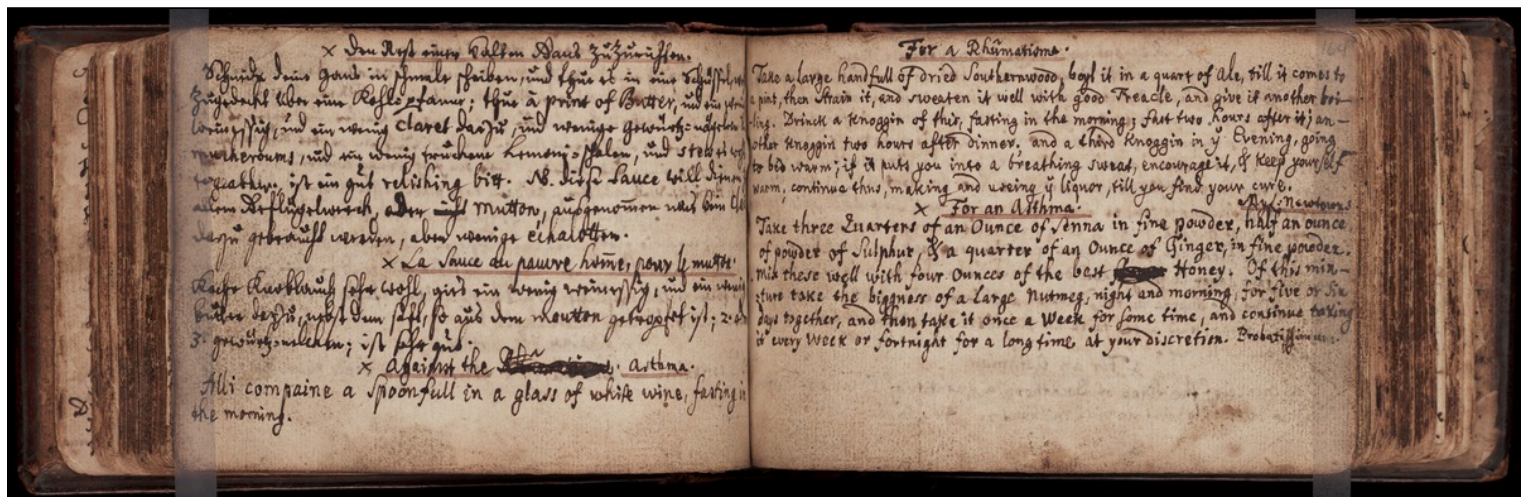 × Den Rest einer kalten Gans zuzurichten.
Schneide deine Gans in schmale scheiben, und thue es in eine Schüssel,
zugedeckt über eine Kohlepfanne; thue à print of Butter, und ein
weinessig, und ein wenig Claret darzu, und wenige gewürtz=nägelein
musherooms, und ein wenig truckene Lemoni=schalen, und stew es
togeather. ist ein gut relishing bitt. NB. diese Sauce will dienen
allem Geflügelwerck, oder mutton, ausgenommen
darzu gebraucht werden, aber wenige échalotten.
× La Sauce du pauvre hom̄e, pour le mutton.
Koche Knoblauch sehr wohl, gies ein wenig weinessig, und ein wenig
butter darzu, nebst dem saft, so aus dem moutton getropfet ist; 2.
3. gewürtz=nelcken; ist sehr gut.
× Against the Asthma.
Alli compaine a spoonfull in a glass of white wine, fasting in
the morning.
For a Rhūmatisme.
Take a large handfull of dried Southernwood, boyl it in a quart of Ale, till it comes to
a pint, then strain it, and sweaten it well with good Treacle, and give it another boi-
ling. Drinck a Knoggin of this, fasting in the morning; fast two hours after it; an-
other Knoggin two hours after dinner. and a third Knoggin in ÿ Evening, going
to bed warm; if it puts you into a breathing sweat, encourage it, & keep yourself
warm, continue thus, making and useing ÿ liquor, till you find your cure.
× For an Asthma. Newtowns
Take three Quarters of an Ounce of Senna in fine powder, half an ounce
of powder of Sulphur, & a quarter of an Ounce of Ginger, in fine powder.
mix these well with four Ounces of the best Honey. Of this mix-
ture take the biggness of a large Nutmeg, night and morning, for five or six
days together, and then take it once a Week for some time, and continue taking
it every Week or fortnight for a long time, at your discretion.